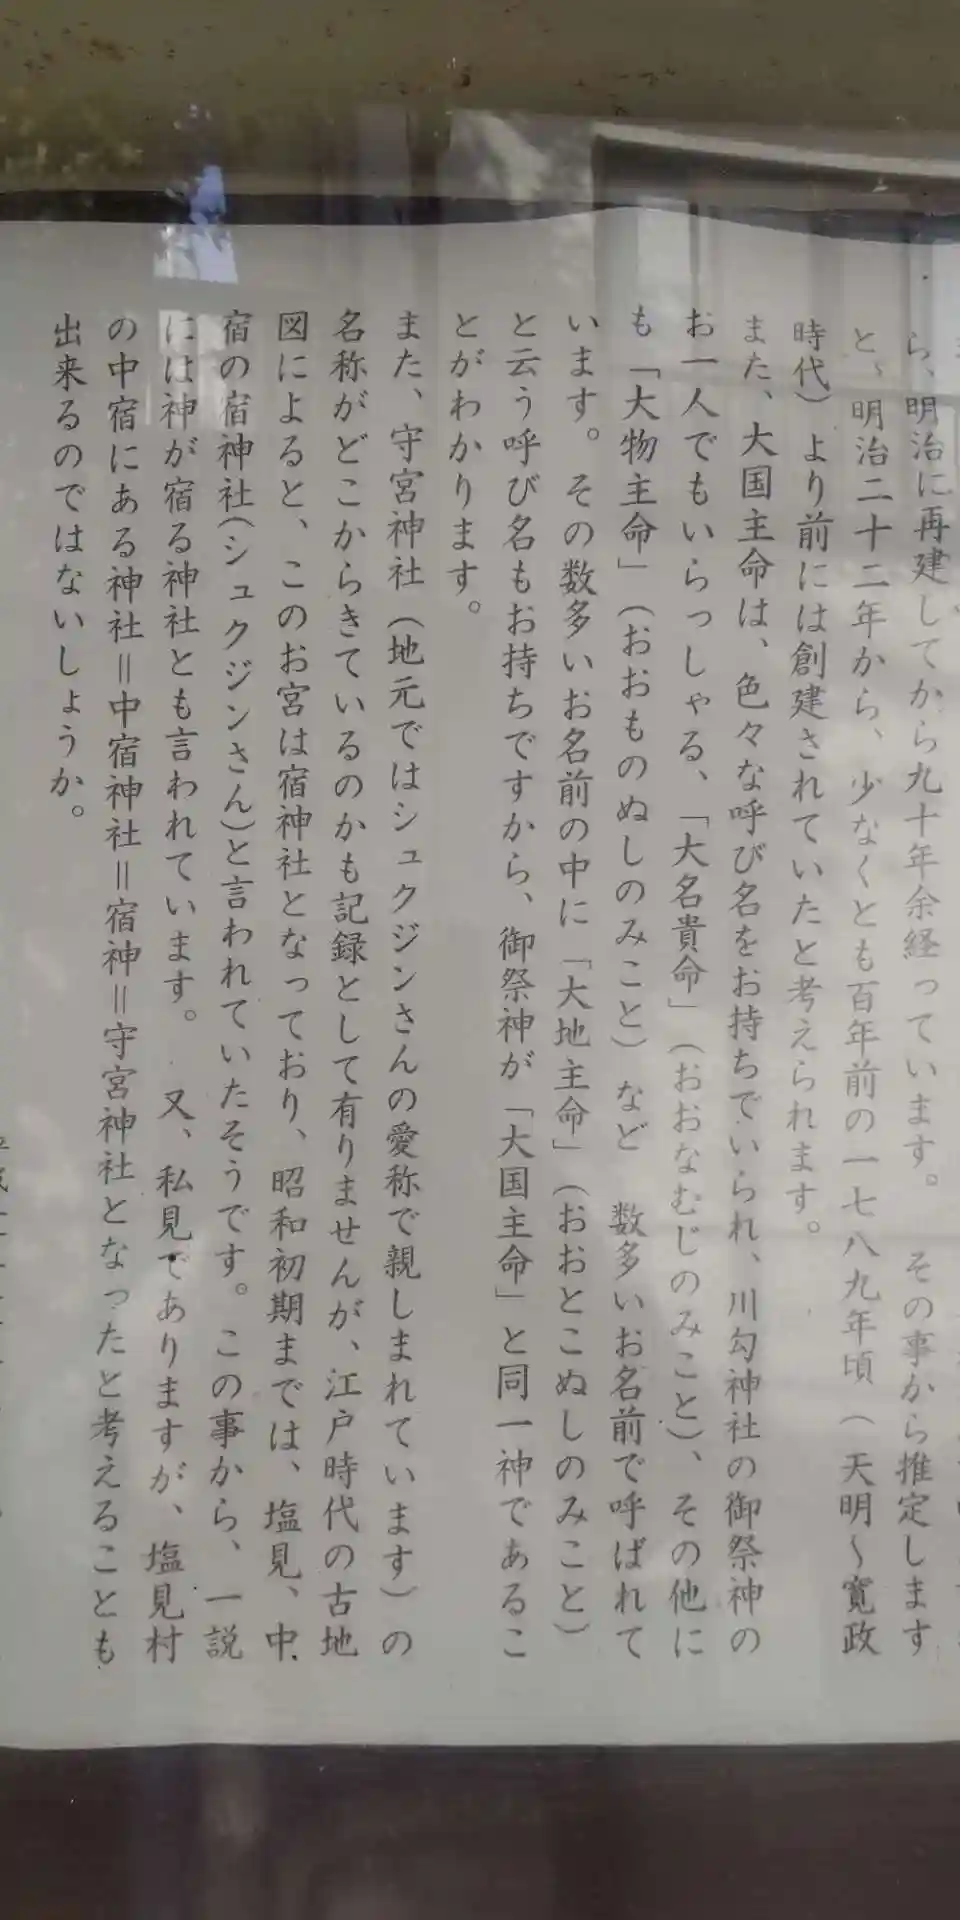 ら、明治に再建してから九十年余経っています。　その事から推定します
と、明治二十二年から、少なくとも百年前の一七八九年頃　（天明～寛政
時代）より前には創建されていたと考えられます。
また、大国主命は、色々な呼び名をお持ちでいられ、川勾神社の御祭神の
お一人でもいらっしゃる、「大名貴命」（おおなむじのみこと）、その他に
も「大物主命」（おおものぬしのみこと）　など　数多いお名前で呼ばれて
います。その数多いお名前の中に「大地主命」（おおとこぬしのみこと）
と云う呼び名もお持ちですから、御祭神が「大国主命」と同一神であるこ
とがわかります。
また、守宮神社（地元ではシュクジンさんの愛称で親しまれています）の
名称がどこからきているのかも記録として有りませんが、江戸時代の古地
図によると、このお宮は宿神社となっており、昭和初期までは、塩見、中
宿の宿神社（シュクジンさん）と言われていたそうです。この事から、一説
には神が宿る神社とも言われています。　又、私見でありますが、塩見村
の中宿にある神社＝中宿神社＝宿神＝守宮神社となったと考えることも
出来るのではないしょうか。